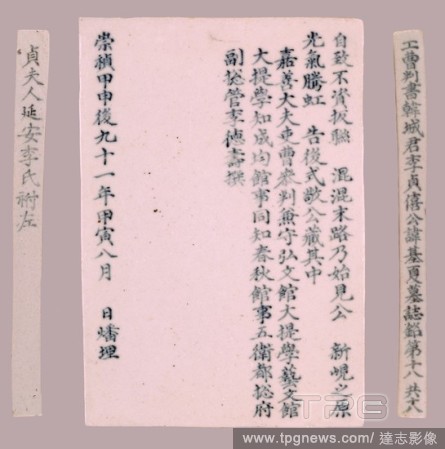 工曹判書韓城君李貞僖公諱基夏墓誌銘第十八 共十八
自致不資扳聯 混混末路乃始見公 新峴之原
光氣騰虹 告後式敬公藏其中
嘉善大夫吏曹參判兼守弘文館大提學藝文館
大提學知成均館事同知春秋館事五衛都摠府
副摠管李德壽撰
崇禎甲申後九十一年甲寅八月 日燔埋
貞夫人延安李氏祔左
TPG
www.tpgnews.com/達志影像